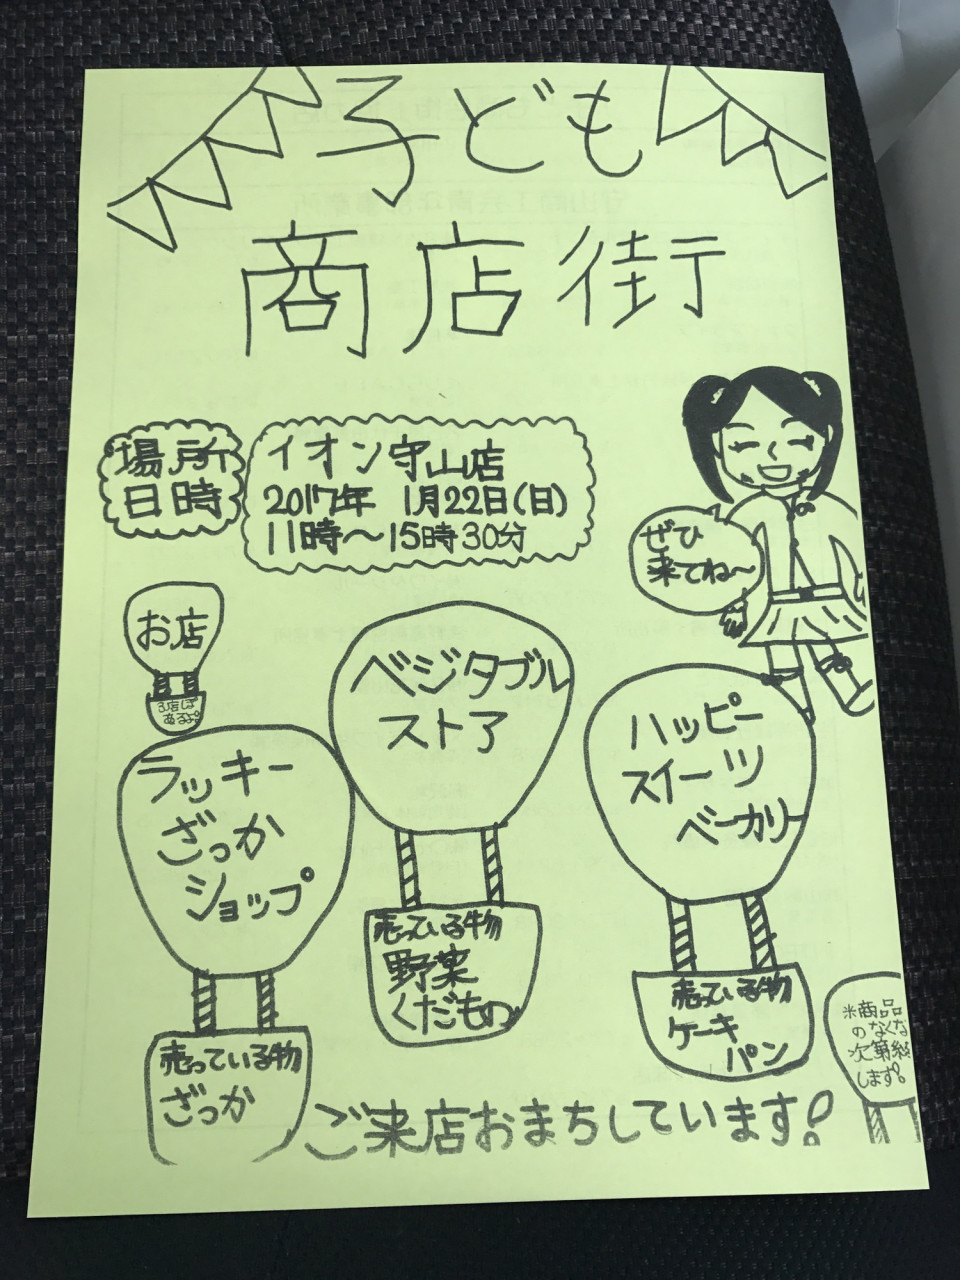 子ども
商店街
場所
日時
イオン守山店
2017年 1月22日(日)
11時〜15時30分
ぜひ
来てね〜
お店
3店しぽ
あるよ。
ベジタブル
ストア
ハッピー
スイーツ
ベーカリー
ラッキー
ざっか
ショップ
売っている物
野菜
くだもの
売っている物
ケーキ
パン
売っている物
ざっか
※商品
のなくな
次第終
します。
ご来店おまちしています!